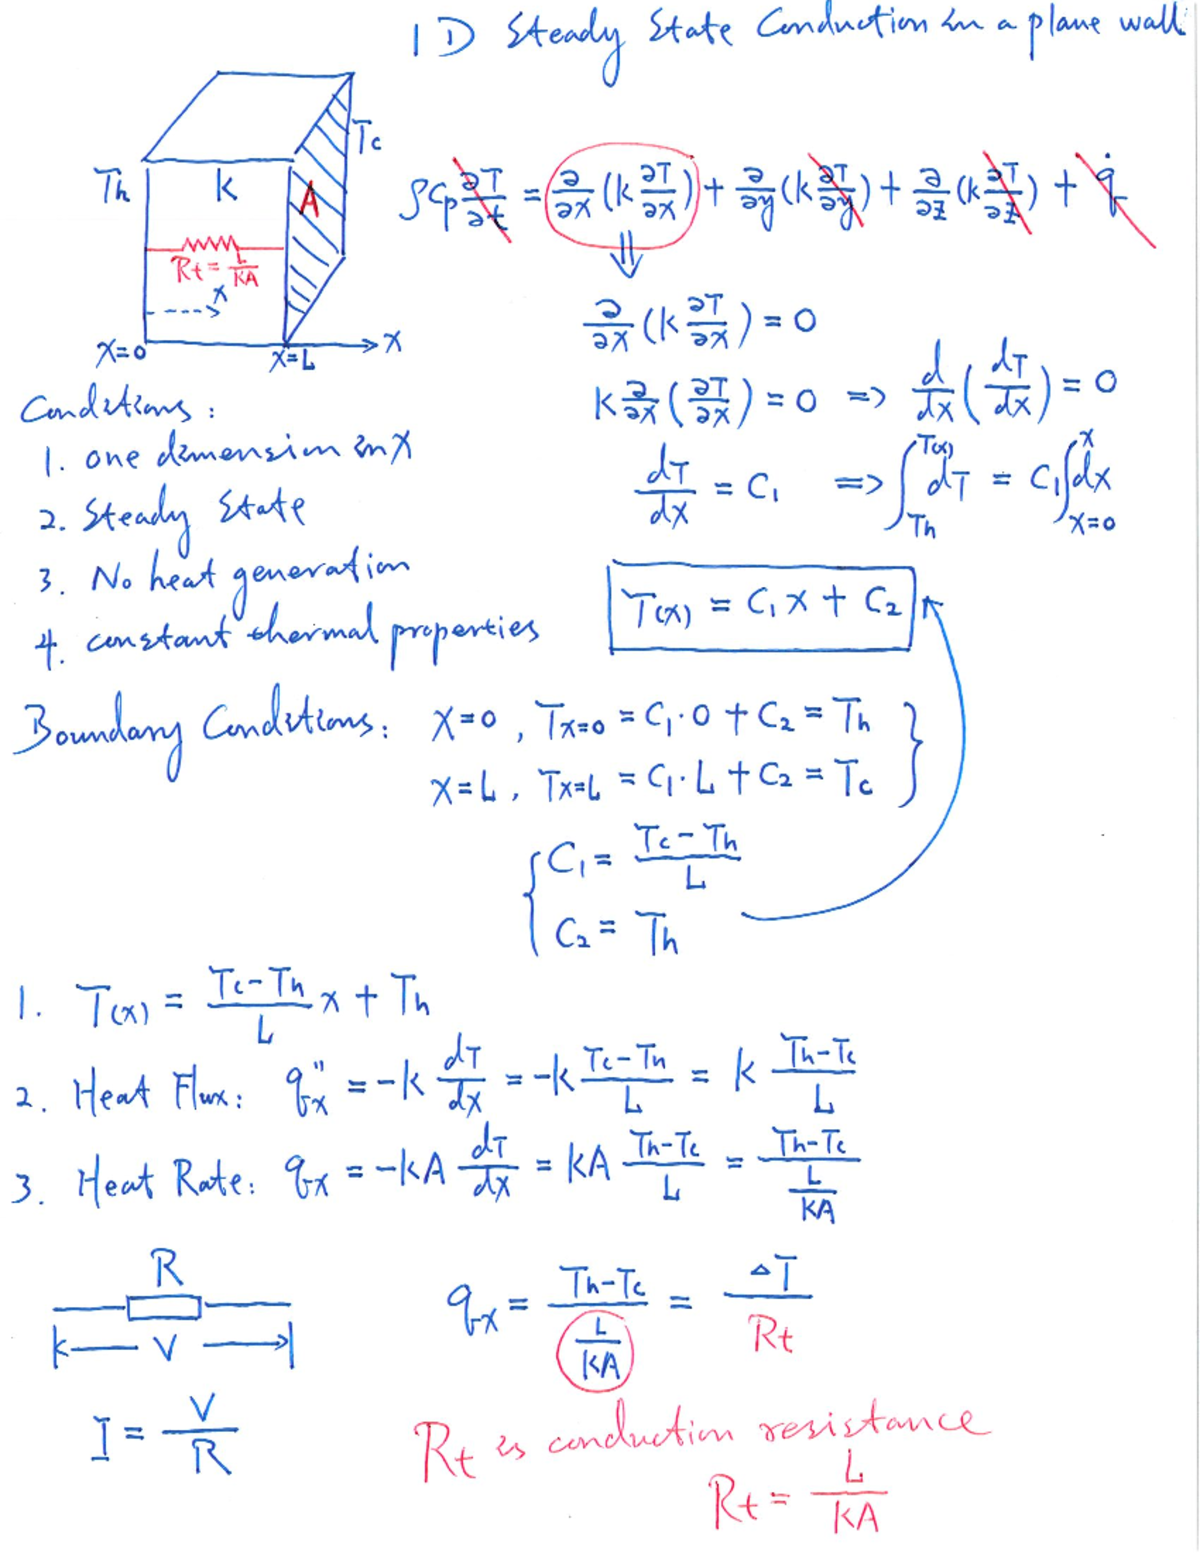 1D Steady State Conduction in a plane wall
Th
k
A
Tc
Rt = L/KA
x
X=0
X=L
X
ρCp ∂T/∂t = ∂/∂x (k ∂T/∂x) + ∂/∂y (k ∂T/∂y) + ∂/∂z (k ∂T/∂z) + q̇
⇓
∂/∂x (k ∂T/∂x) = 0
K ∂/∂x (∂T/∂x) = 0 => d/dx (dT/dx) = 0
dT/dx = C₁ => ∫_Th^T(x) dT = C₁ ∫_X=0^x dx
T(x) = C₁ X + C₂
Conditions:
1. one dimension in X
2. Steady State
3. No heat generation
4. constant thermal properties
Boundary Conditions: X=0, Tx=0 = C₁·0 + C₂ = Th
X=L, Tx=L = C₁·L + C₂ = Tc
C₁ = Tc-Th/L
C₂ = Th
1. T(x) = Tc-Th/L x + Th
2. Heat Flux: q″x = -k dT/dx = -k Tc-Th/L = k Th-Tc/L
3. Heat Rate: qx = -kA dT/dx = kA Th-Tc/L = Th-Tc/(L/KA)
R
V
I = V/R
qx = Th-Tc/(L/KA) = ΔT/Rt
Rt is conduction resistance
Rt = L/KA